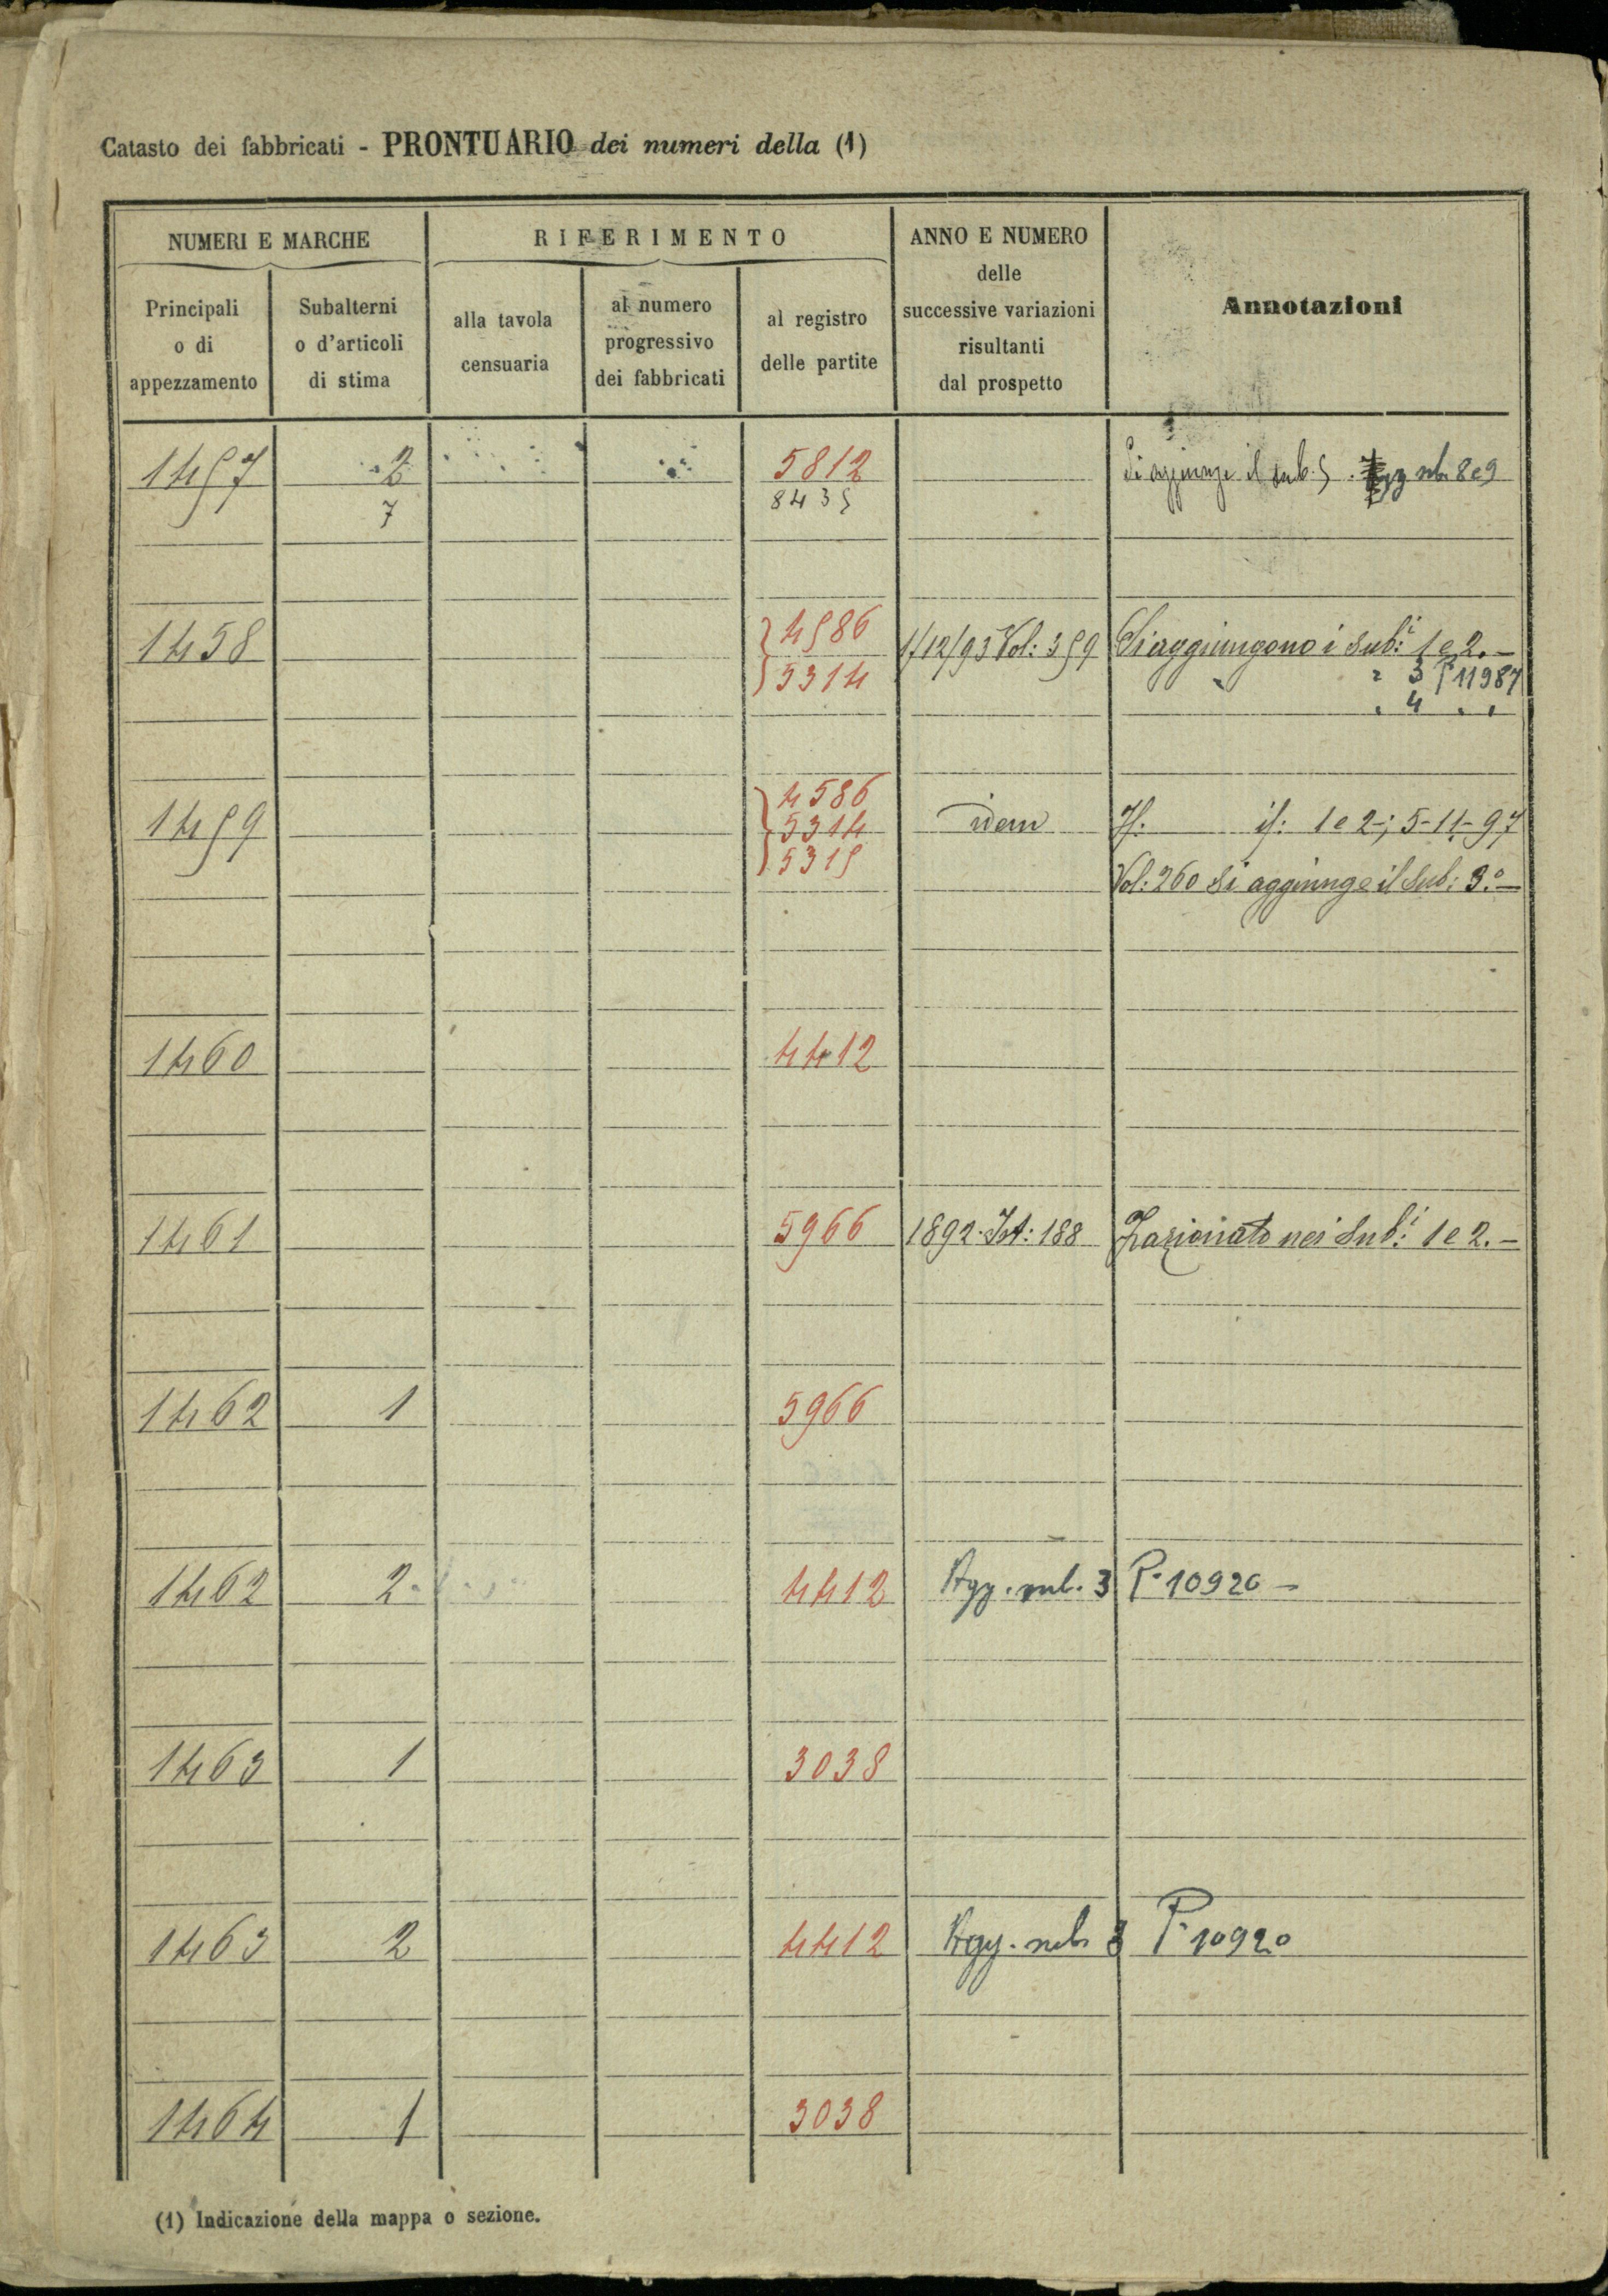 Catasto dei fabbricati - PRONTUARIO dei numeri della (1)
NUMERI E MARCHE
RIFERIMENTO
ANNO E NUMERO
delle
successive variazioni
risultanti
dal prospetto
Annotazioni
Principali
o di
appezzamento
Subalterni
o d'articoli
di stima
alla tavola
censuaria
al numero
progressivo
dei fabbricati
al registro
delle partite
1457 2 5812 Si aggiunge il sub. 5 . Agg sub. 8 e 9
7 8435
1458 4586 1/12/93 Vol: 359 Si aggiungono i Sub:i 1 e 2. -
5314 " " 3 P 11987
" 4 " "
1459 4586 idem If: if: 1 e 2-; 5-11-97
5314
5315 Vol: 260 Si aggiunge il Sub: 3.o -
1460 4412
1461 5966 1892. Ist: 188 Frazionato nei Sub:i 1 e 2. -
1462 1 5966
1462 2 4412 Agg. sub. 3 P. 10920 -
1463 1 3038
1463 2 4412 Agg. sub. 3 P. 10920
1464 1 3038
(1) Indicazione della mappa o sezione.